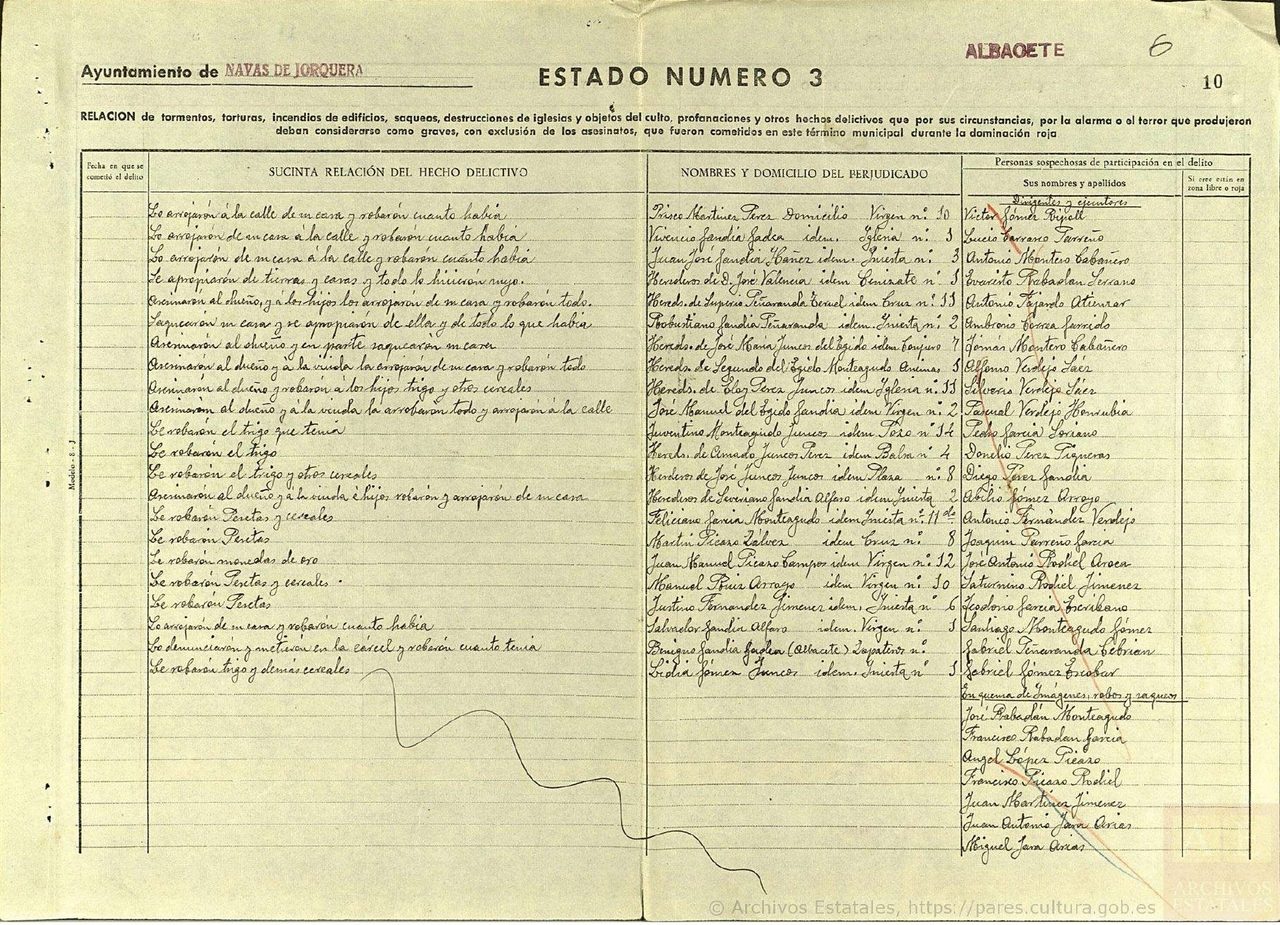 ALBACETE
6
Ayuntamiento de NAVAS DE JORQUERA
ESTADO NUMERO 3
10
RELACION de tormentos, torturas, incendios de edificios, saqueos, destrucciones de iglesias y objetos del culto, profanaciones y otros hechos delictivos que por sus circunstancias, por la alarma o el terror que produjeron
deban considerarse como graves, con exclusión de los asesinatos, que fueron cometidos en este término municipal durante la dominación roja
Fecha en que se cometió el delito
SUCINTA RELACIÓN DEL HECHO DELICTIVO
NOMBRES Y DOMICILIO DEL PERJUDICADO
Personas sospechosas de participación en el delito
Sus nombres y apellidos
Si cree están en zona libre o roja
Dirigentes y ejecutores
Lo arrojarón á la calle de su casa y robarón cuanto habia Prisco Martinez Perez Domicilio Virgen nº 10 Victor Gómez Ripoll
Lo arrojarón de su casa á la calle y robarón cuanto habia Vivencio Gandia idem. Iglesia nº 1 Lucio Carrasco Parreño
Lo arrojarón de su casa a la calle y robarón cuanto habia Juan José Gandia Ibáñez idem. Iniesta nº 3 Antonio Montero Cabañero
Se apropiarón de tierras y casas y todo lo hicieron suyo. Herederos de D. José Valencia idem Cenizate nº 1 Evaristo Rabadan Serrano
Asesinarón al dueño, y á los hijos los arrojaron de su casa y robarón todo. Hereds. de Superio Peñaranda Teruel idem Cruz nº 11 Antonio Fajardo Atienzar
Saquearón su casa y se apropiarón de ella y de todo lo que habia Robustiano Gandia Peñaranda idem. Iniesta nº 2 Ambrosio Correa Garrido
Asesinarón al dueño y en parte saquearón su casa Hereds. de José Maria Juncos del Egido idem Conjuro 7 Tomás Montero Cabañero
Asesinarón al dueño y á la viuda la arrojaron de su casa y robarón todo Hereds. de Segundo del Egido Monteagudo Animas 1 Alfonso Verdejo Sáez
Asesinarón al dueño y robarón á los hijos trigo y otros cereales Hereds. de Eloy Perez Juncos idem Iglesia nº 11 Silverio Verdejo Sáez
Asesinarón al dueño y á la viuda la arrobaron todo y arrojarón á la calle José Manuel del Egido Gandia idem Virgen nº 2 Pascual Verdejo Honrubia
Le robarón el trigo que tenia Juventino Monteagudo Juncos idem Pozo nº 14 Pedro Garcia Soriano
Le robarón el trigo Hereds. de Amado Juncos Perez idem Balsa nº 4 Donelio Perez Piqueras
Le robarón el trigo y otros cereales Herderos de José Juncos Juncos idem Plaza nº 8 Diego Perez Gandia
Asesinarón al dueño y á la viuda é hijos robarón y arrojarón de su casa Herederos de Severiano Gandia Alfaro idem Iniesta 2 Abilio Gómez Arroyo
Le robarón Pesetas y cereales Feliciano Garcia Monteagudo idem Iniesta nº 11 do Antonio Fernández Verdejo
Le robarón Pesetas Martin Picazo Zalvez idem Cruz nº 8 Joaquin Parreño Garcia
Le robarón monedas de oro Juan Manuel Picazo Campos idem Virgen nº 12 José Antonio Rodiel Aroca
Le robarón Pesetas y cereales. Manuel Ruiz Arroyo idem Virgen nº 10 Saturnino Rodiel Jimenez
Le robarón Pesetas Justino Fernandez Jimenez idem. Iniesta nº 6 Teodoro Garcia Escribano
Lo arrojarón de su casa y robarón cuanto habia Salvador Gandia Alfaro idem. Virgen nº 1 Santiago Monteagudo Gómez
Lo denunciarón y metierón en la cárcel y robarón cuanto tenia Benigno Gandia (Albacete) Zapateros nº Gabriel Peñaranda Cebrian
Le robarón trigo y demás cereales Lidia Gómez Juncos idem. Iniesta nº 1 Gabriel Gómez Escobar
En quema de Imágenes, robos y saqueos
José Rabadán Monteagudo
Francisco Rabadan Garcia
Angel López Picazo
Francisco Picazo Rodiel
Juan Martinez Jimenez
Juan Antonio Jara Arias
Miguel Jara Arias
Modelo - 8 - J
ARCHIVOS
ESTATALES
© Archivos Estatales, https://pares.cultura.gob.es